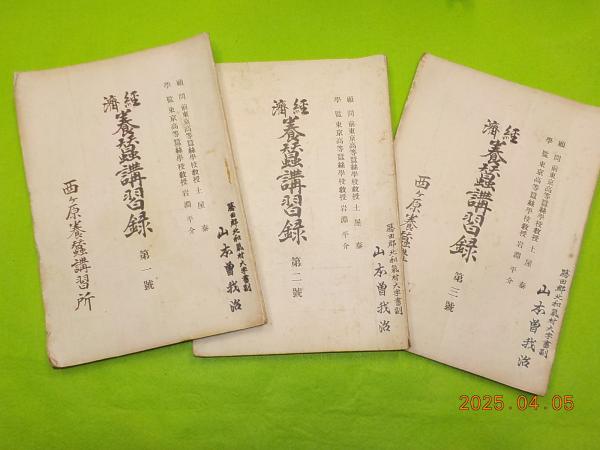 顧問 前東京高等蠶絲學校教授 土屋泰
學監 東京高等蠶絲學校教授 岩淵平介
經濟 養蠶講習録 第一號
西ヶ原養蠶講習所
顧問 前東京高等蠶絲學校教授 土屋泰
學監 東京高等蠶絲學校教授 岩淵平介
經濟 養蠶講習録 第二號
磐田郡北和氣村大字書副
山本曽我治
顧問 前東京高等蠶絲學校教授 土屋泰
學監 東京高等蠶絲學校教授 岩淵平介
經濟 養蠶講習録 第三號
西ヶ原養蠶講
山本曽我治
2025.04.05